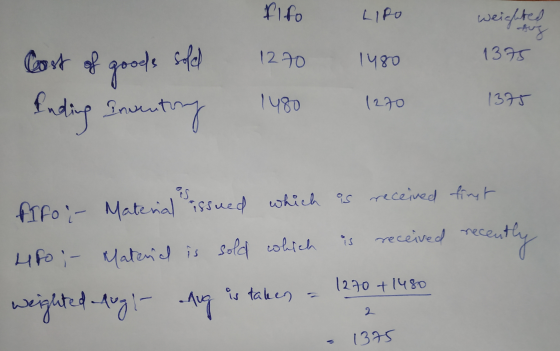 FIFO LIFO weighted Avg
Cost of goods sold 1270 1480 1375
Ending Inventory 1480 1270 1375
FIFO :- Material is issued which is received first
LIFO :- Material is sold which is received recently
weighted Avg :- Avg is taken = 1270 + 1480
2
= 1375